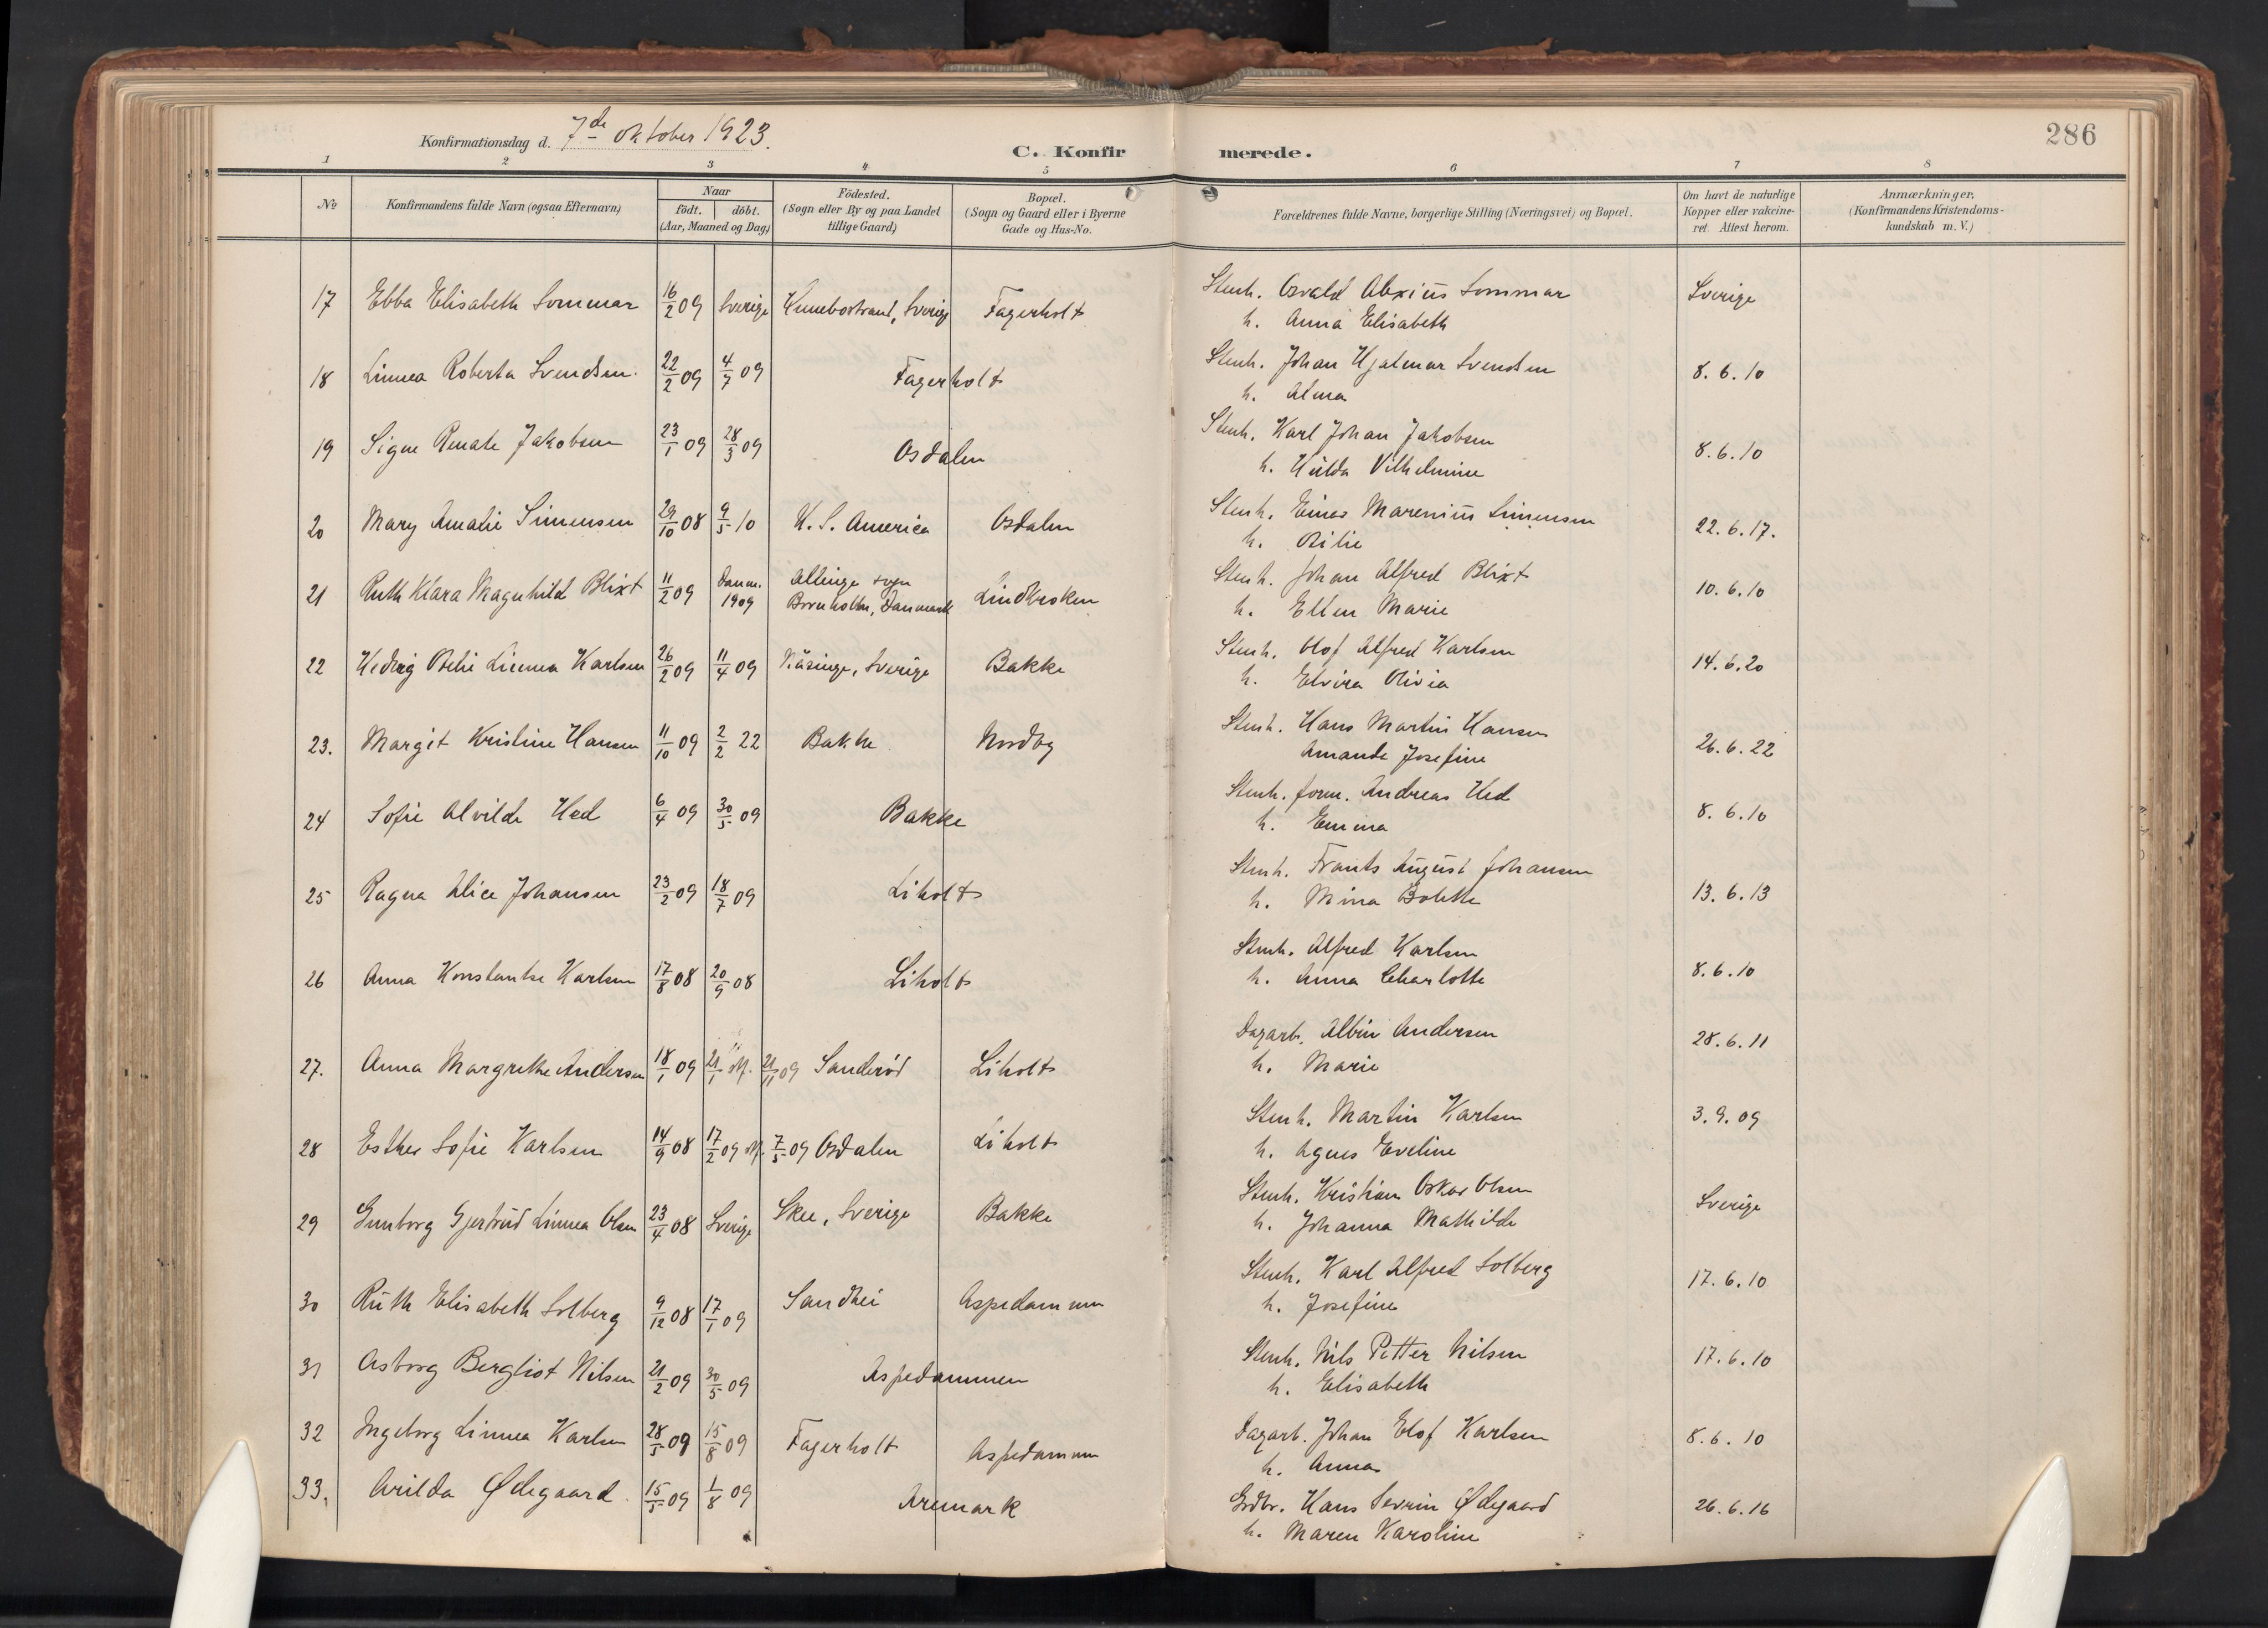 286
Konfirmationsdag d. 7de oktober 1923.
C. Konfirmerede.
1 2 3 4 5 6 7 8
No
Konfirmandens fulde Navn (ogsaa Efternavn)
Naar
födt. döbt.
(Aar, Maaned og Dag)
Födested.
(Sogn eller By og paa Landet
tillige Gaard)
Bopæl.
(Sogn og Gaard eller i Byerne
Gade og Hus-No.
Forældrenes fulde Navne, borgerlige Stilling (Næringsvei) og Bopæl.
Om havt de naturlige
Kopper eller vakcine-
ret. Attest herom.
Anmærkninger.
(Konfirmandens Kristendoms-
kundskab m. V.)
17 Ebba Elisabeth Sommar 16/2 09 Sverige Hunebostrand, Sverige Fagerholt Stenh. Osvald Alexius Sommar Sverige
h. Anna Elisabeth
18 Linnea Roberta Svendsen. 22/2 09 4/7 09 Fagerholt Stenh. Johan Hjalmar Svendsen 8.6.10
h. Alma
19 Signe Renate Jakobsen 23/1 09 28/3 09 Osdalen Stenh. Karl Johan Jakobsen 8.6.10
h. Hulda Vilhelmine
20 Mary Amalie Simensen 29/10 08 9/5 10 U. S. America Osdalen Stenh. Einar Marenius Simensen 22.6.17.
h. Otilie
21 Ruth Klara Magnhild Blixt 11/2 09 Danm. 1909 Allinge sogn Bornholm, Danmark Lindbroken Stenh. Johan Alfred Blixt 10.6.10
h. Ellen Marie
22 Hedvig Otelie Linnea Karlsen 26/2 09 11/4 09 Näsinge, Sverige Bakke Stenh. Olof Alfred Karlsen 14.6.20
h. Elvira Olivia
23. Margit Kristine Hansen 11/10 09 2/2 22 Bakke Nordby Stenh. Hans Martin Hansen 26.6.22
Amanda Josefine
24 Sofie Alvilde Hed 6/4 09 30/5 09 Bakke Stenh. form. Andreas Hed 8.6.10
h. Emma
25 Ragna Alice Johansen 23/2 09 18/7 09 Liholt Stenh. Frants August Johansen 13.6.13
h. Mina Bolette
26 Anna Konstantse Karlsen 17/8 08 20/9 08 Liholt Stenh. Alfred Karlsen 8.6.10
h. Anna Charlotte
27. Anna Margrethe Andersen 18/1 09 21/1 M. 21/11 09 Sanderöd Liholt Dagarb. Albin Andersen 28.6.11
h. Marie
28 Esther Sofie Karlsen 14/9 08 17/2 09 M. 7/5 09 Osdalen Liholt Stenh. Martin Karlsen 3.9.09
h. Agnes Eveline
29 Gunborg Gjertrud Linnea Olsen 23/4 08 Sverige Skee, Sverige Bakke Stenh. Kristian Oskar Olsen Sverige
h. Johanna Mathilde
30 Ruth Elisabeth Solberg 9/12 08 17/1 09 Sandhei Aspedammen Stenh. Karl Alfred Solberg 17.6.10
h. Josefine
31 Asborg Bergliot Nilsen 21/2 09 30/5 09 Aspedammen Stenh. Nils Petter Nilsen 17.6.10
h. Elisabeth
32 Ingeborg Linnea Karlsen 28/5 09 15/8 09 Fagerholt Aspedammen Dagarb. Johan Elof Karlsen 8.6.10
h. Anna
33. Arilda Ødegaard. 15/5 09 1/8 09 Aremark Grdbr. Hans Severin Ødegaard 26.6.16
h. Maren Karoline